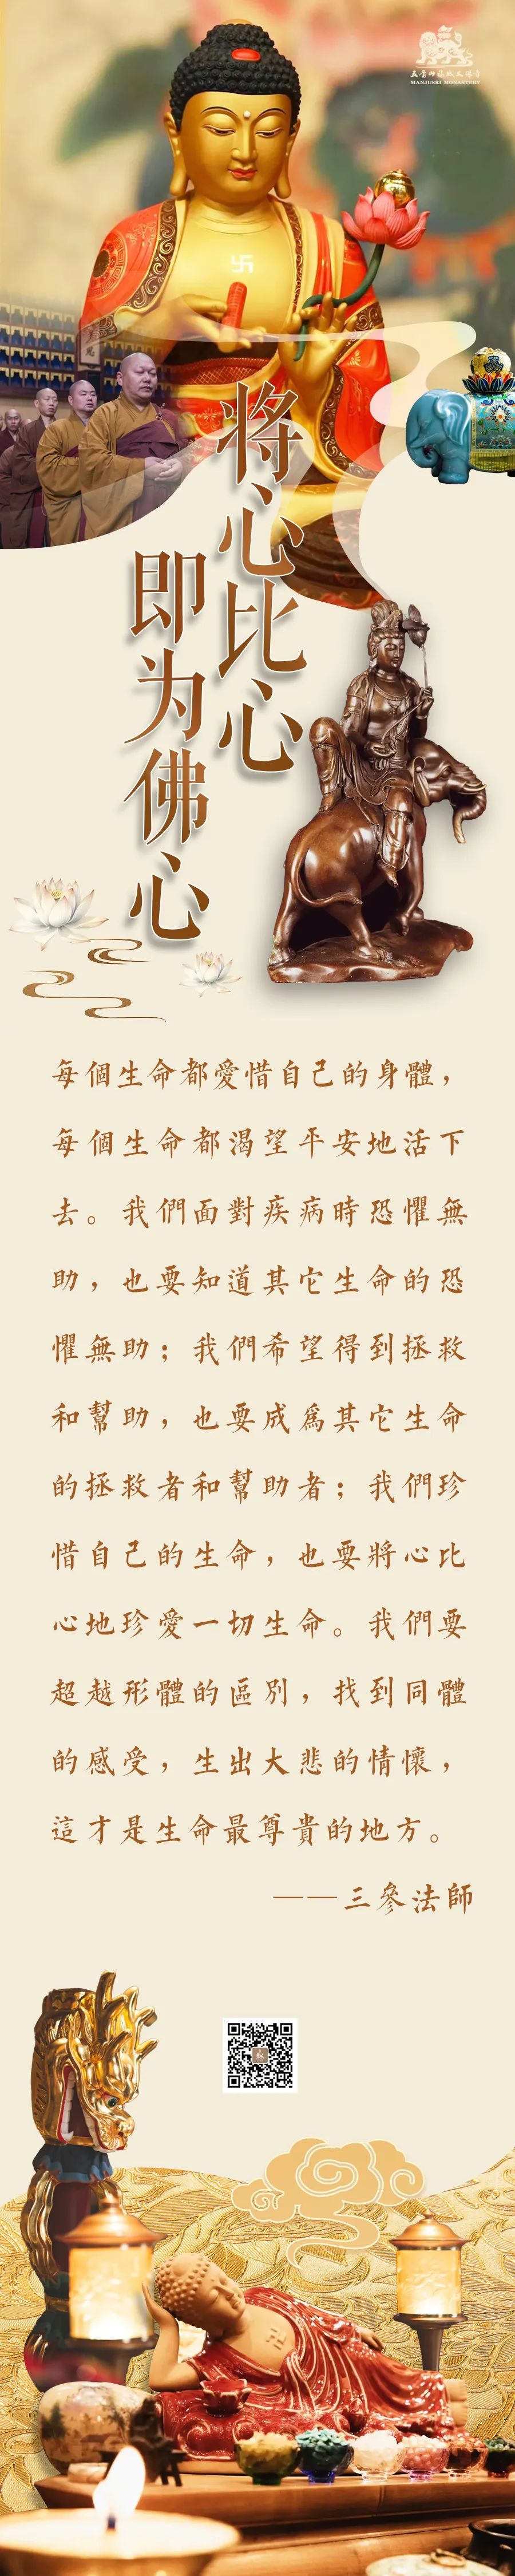 MANJUSRI MONASTERY
将心比心
即为佛心
每個生命都愛惜自己的身體，
每個生命都渴望平安地活下
去。我們面對疾病時恐懼無
助，也要知道其它生命的恐
懼無助；我們希望得到拯救
和幫助，也要成爲其它生命
的拯救者和幫助者；我們珍
惜自己的生命，也要將心比
心地珍愛一切生命。我們要
超越形體的區別，找到同體
的感受，生出大悲的情懷，
這才是生命最尊貴的地方。
——三參法師